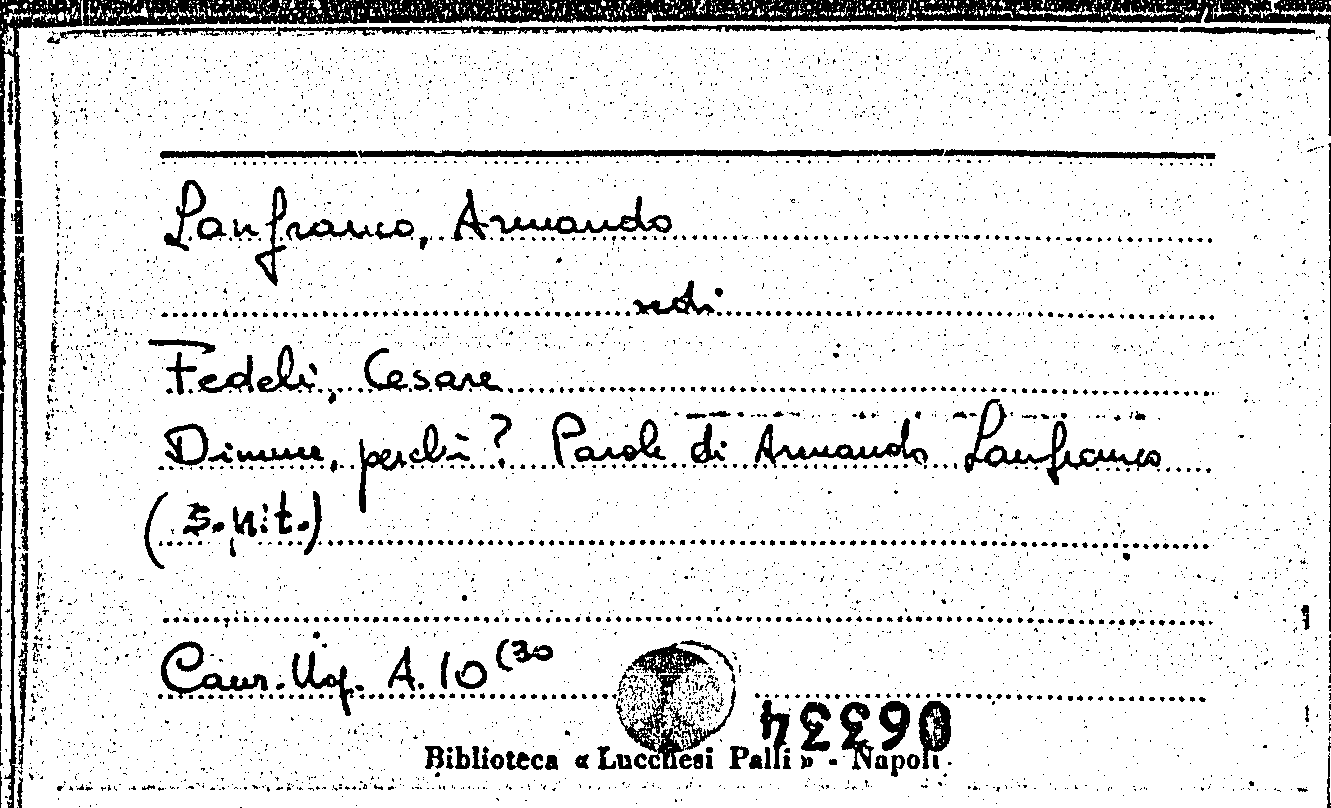 Lanfranco, Armando
vedi
Fedeli, Cesare
Dimme, perchè? Parole di Armando Lanfranco
(s.n.t.)
Canz. Nap. A. 10 (30
06334
Biblioteca « Lucchesi Palli » - Napoli